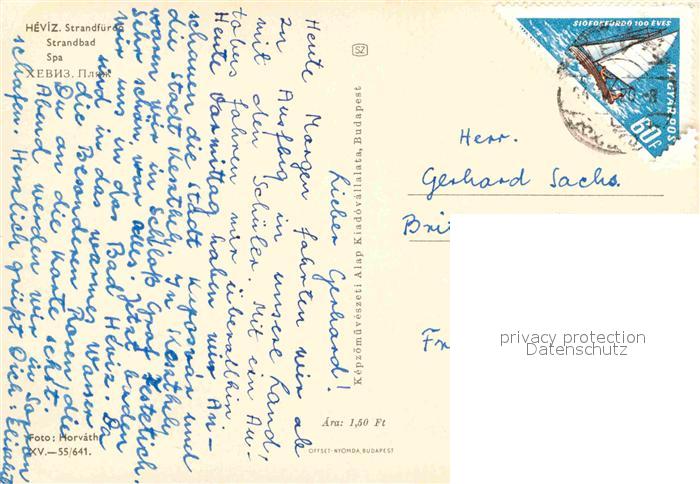 HÉVÍZ. Strandfürdő
Strandbad
Spa
ХЕВИЗ. Пляж
SZ
SIÓFOKFÜRDŐ 100 ÉVES
MAGYAR POSTA
60 f
Lieber Gerhard!
Heute Morgen fahrten wir ab
zu Ausflug in unsere Land,
mit den Schüler. Mit ein Au-
tobus fahren mir überallhin.
Heute Vormittag haben wir An-
schauen die Stadt Kaposvár und
die Stadt Keszthely. In Keszthely
waren wir in Schloß Graf Festetich.
Sehr schön, war alles. Jetzt buden
wir uns in das Bad Hévíz. Da
sind in das warmes Wasser
die Besonderen Rosen, die
Du an die Karte siehst.
Abend werden wir in Sopron
schlafen. Herzlich grüßt Dich: Elisabet
Herr.
Gerhard Sachs.
Bri
Fr
privacy protection
Datenschutz
Képzőművészeti Alap Kiadóvállalata, Budapest
Foto: Horváth
XV.—55/641.
Ára: 1,50 Ft
OFFSET-NYOMDA, BUDAPEST